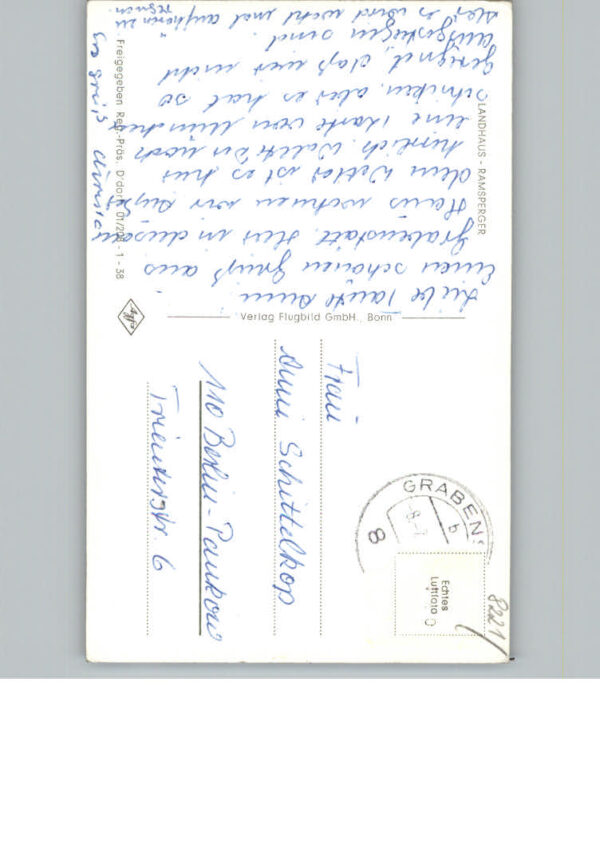 LANDHAUS - RAMSPERGER
Liebe Tante Anni
Einen schönen Gruß aus
Grabenstätt. Hier in diesem
Haus wohnen wir. Außer
dem Wetter ist es hier
herrlich. Wollte Dir noch
eine Karte von München
schicken, aber es hat so
geregnet, daß wir nicht
ausgestiegen sind.
es wird wohl mal aufhören zu
regnen.
Es grüßt
Freigegeben Reg.-Präs. D'dorf 01/20 - 1 - 38
Agfa
Verlag Flugbild GmbH., Bonn
Frau
Anni Schittelkop
110 Berlin-Pankow
Trienterstr. 6
GRABENS
8
b
Echtes
Luftfoto
8221